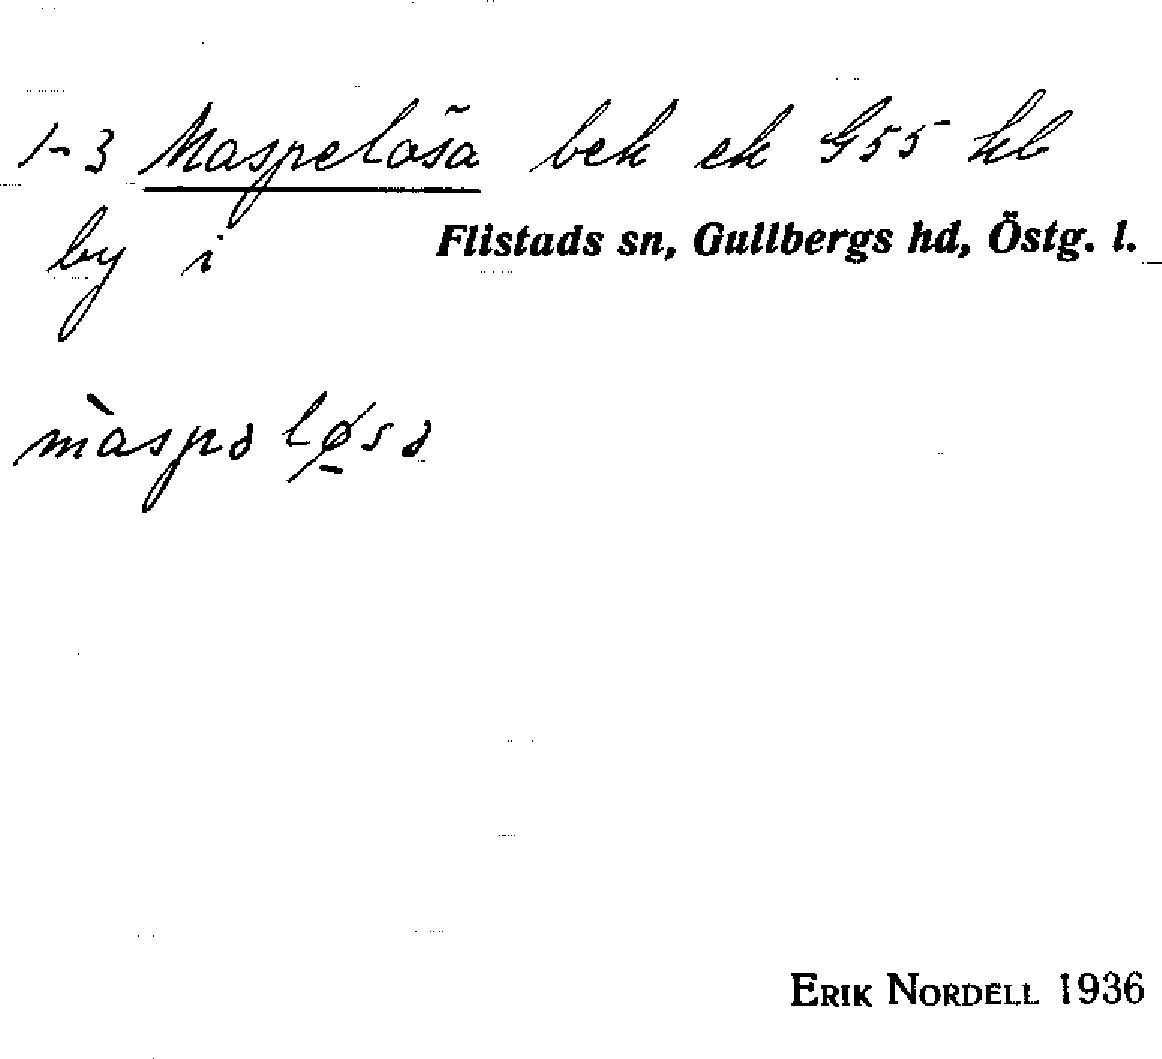 1-3 Maspelösa bek ek G55 hb
by i Flistads sn, Gullbergs hd, Östg. l.
màspə lø̠sə
ERIK NORDELL 1936